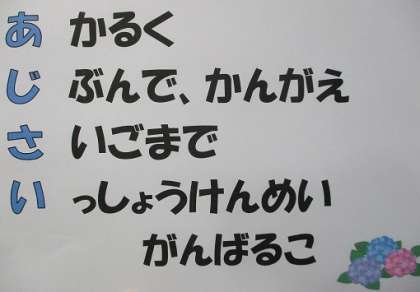 あ かるく
じ ぶんで、かんがえ
さ いごまで
い っしょうけんめい
がんばるこ